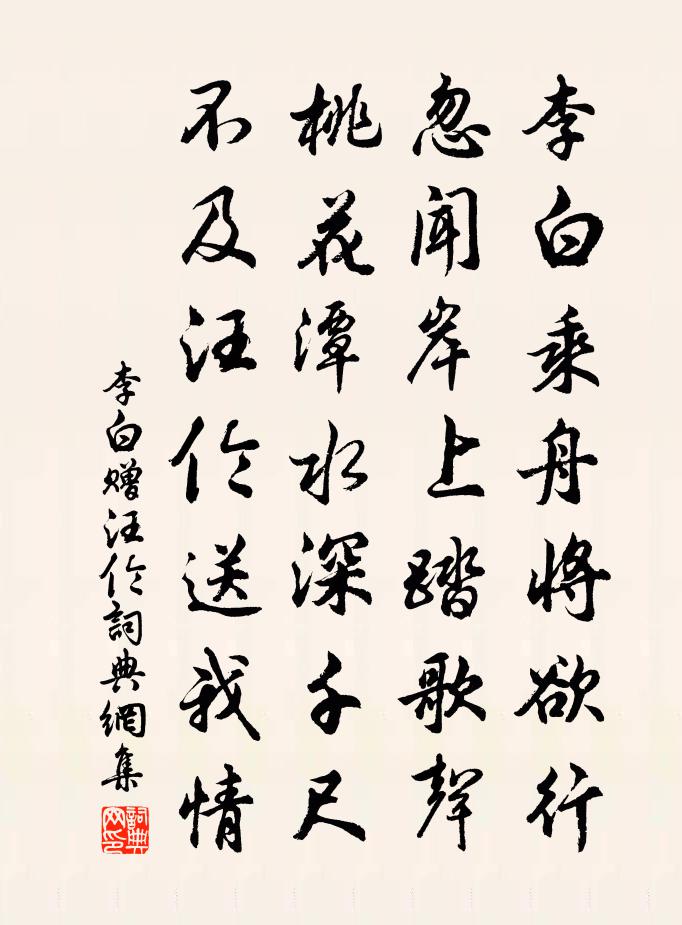 李白乘舟將欲行
忽聞岸上踏歌聲
桃花潭水深千尺
不及汪伦送我情
李白赠汪伦詞典網集
詞典
网印